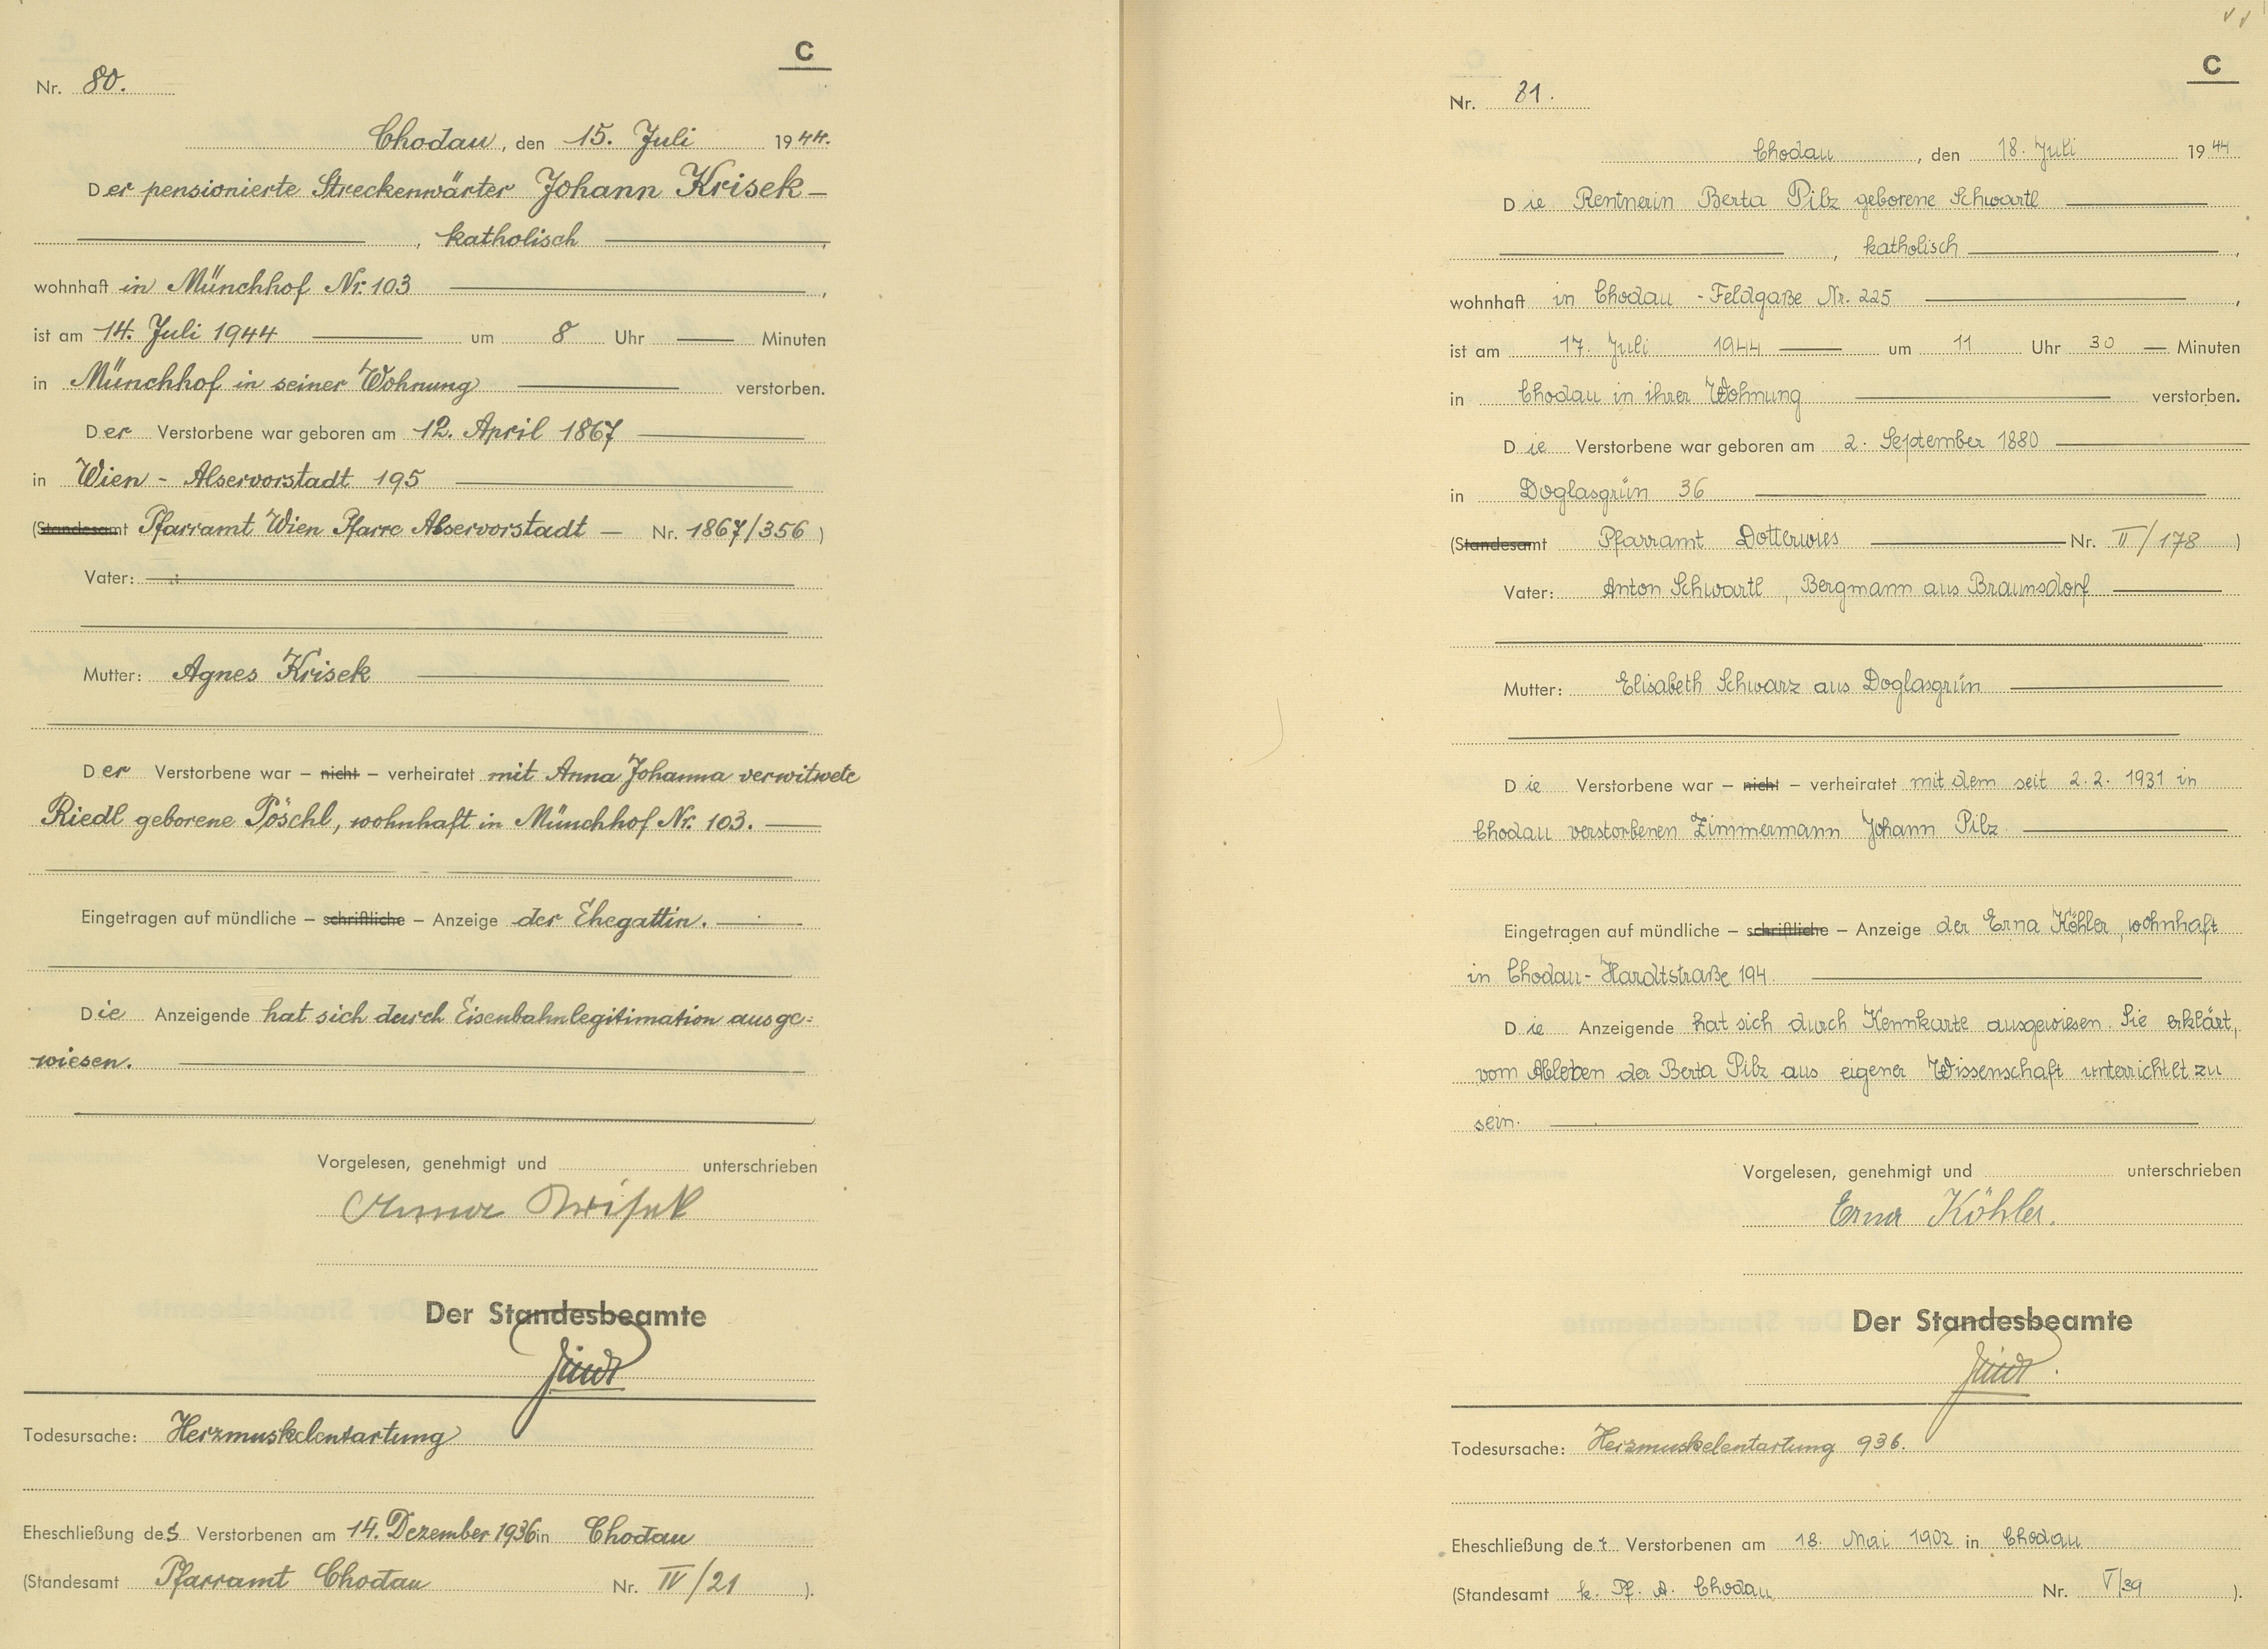 C
Nr. 80.
Chodau, den 15. Juli 1944.
Der pensionierte Streckenwärter Johann Krisek —
, katholisch ,
wohnhaft in Münchhof Nr. 103 ,
ist am 14. Juli 1944 um 8 Uhr — Minuten
in Münchhof in seiner Wohnung verstorben.
Der Verstorbene war geboren am 12. April 1867
in Wien - Alservorstadt 195
(Standesamt Pfarramt Wien Pfarre Alservorstadt — Nr. 1867/356 )
Vater:
Mutter: Agnes Krisek
Der Verstorbene war – nicht – verheiratet mit Anna Johanna verwitwete
Riedl geborene Pöschl, wohnhaft in Münchhof Nr. 103.
Eingetragen auf mündliche – schriftliche – Anzeige der Ehegattin.
Die Anzeigende hat sich durch Eisenbahnlegitimation ausge=
wiesen.
Vorgelesen, genehmigt und unterschrieben
Anna Krisek
Der Standesbeamte
Todesursache: Herzmuskelentartung
Eheschließung des Verstorbenen am 14. Dezember 1936 in Chodau
(Standesamt Pfarramt Chodau Nr. IV/21 ).
C
Nr. 81.
Chodau, den 18. Juli 1944
Die Rentnerin Berta Pilz geborene Schwartl
, katholisch ,
wohnhaft in Chodau - Feldgaße Nr. 225 ,
ist am 17. Juli 1944 um 11 Uhr 30 — Minuten
in Chodau in ihrer Wohnung verstorben.
Die Verstorbene war geboren am 2. September 1880
in Doglasgrün 36
(Standesamt Pfarramt Dotterwies Nr. II/178 )
Vater: Anton Schwartl, Bergmann aus Braunsdorf
Mutter: Elisabeth Schwarz aus Doglasgrün
Die Verstorbene war – nicht – verheiratet mit dem seit 2.2. 1931 in
Chodau verstorbenen Zimmermann Johann Pilz.
Eingetragen auf mündliche – schriftliche – Anzeige der Erna Köhler, wohnhaft
in Chodau - Hardtstraße 194.
Die Anzeigende hat sich durch Kennkarte ausgewiesen. Sie erklärt,
vom Ableben der Berta Pilz aus eigener Wissenschaft unterrichtet zu
sein.
Vorgelesen, genehmigt und unterschrieben
Erna Köhler.
Der Standesbeamte
Todesursache: Herzmuskelentartung 936.
Eheschließung der Verstorbenen am 18. Mai 1902 in Chodau
(Standesamt k. Pf. A. Chodau Nr. V/39 ).